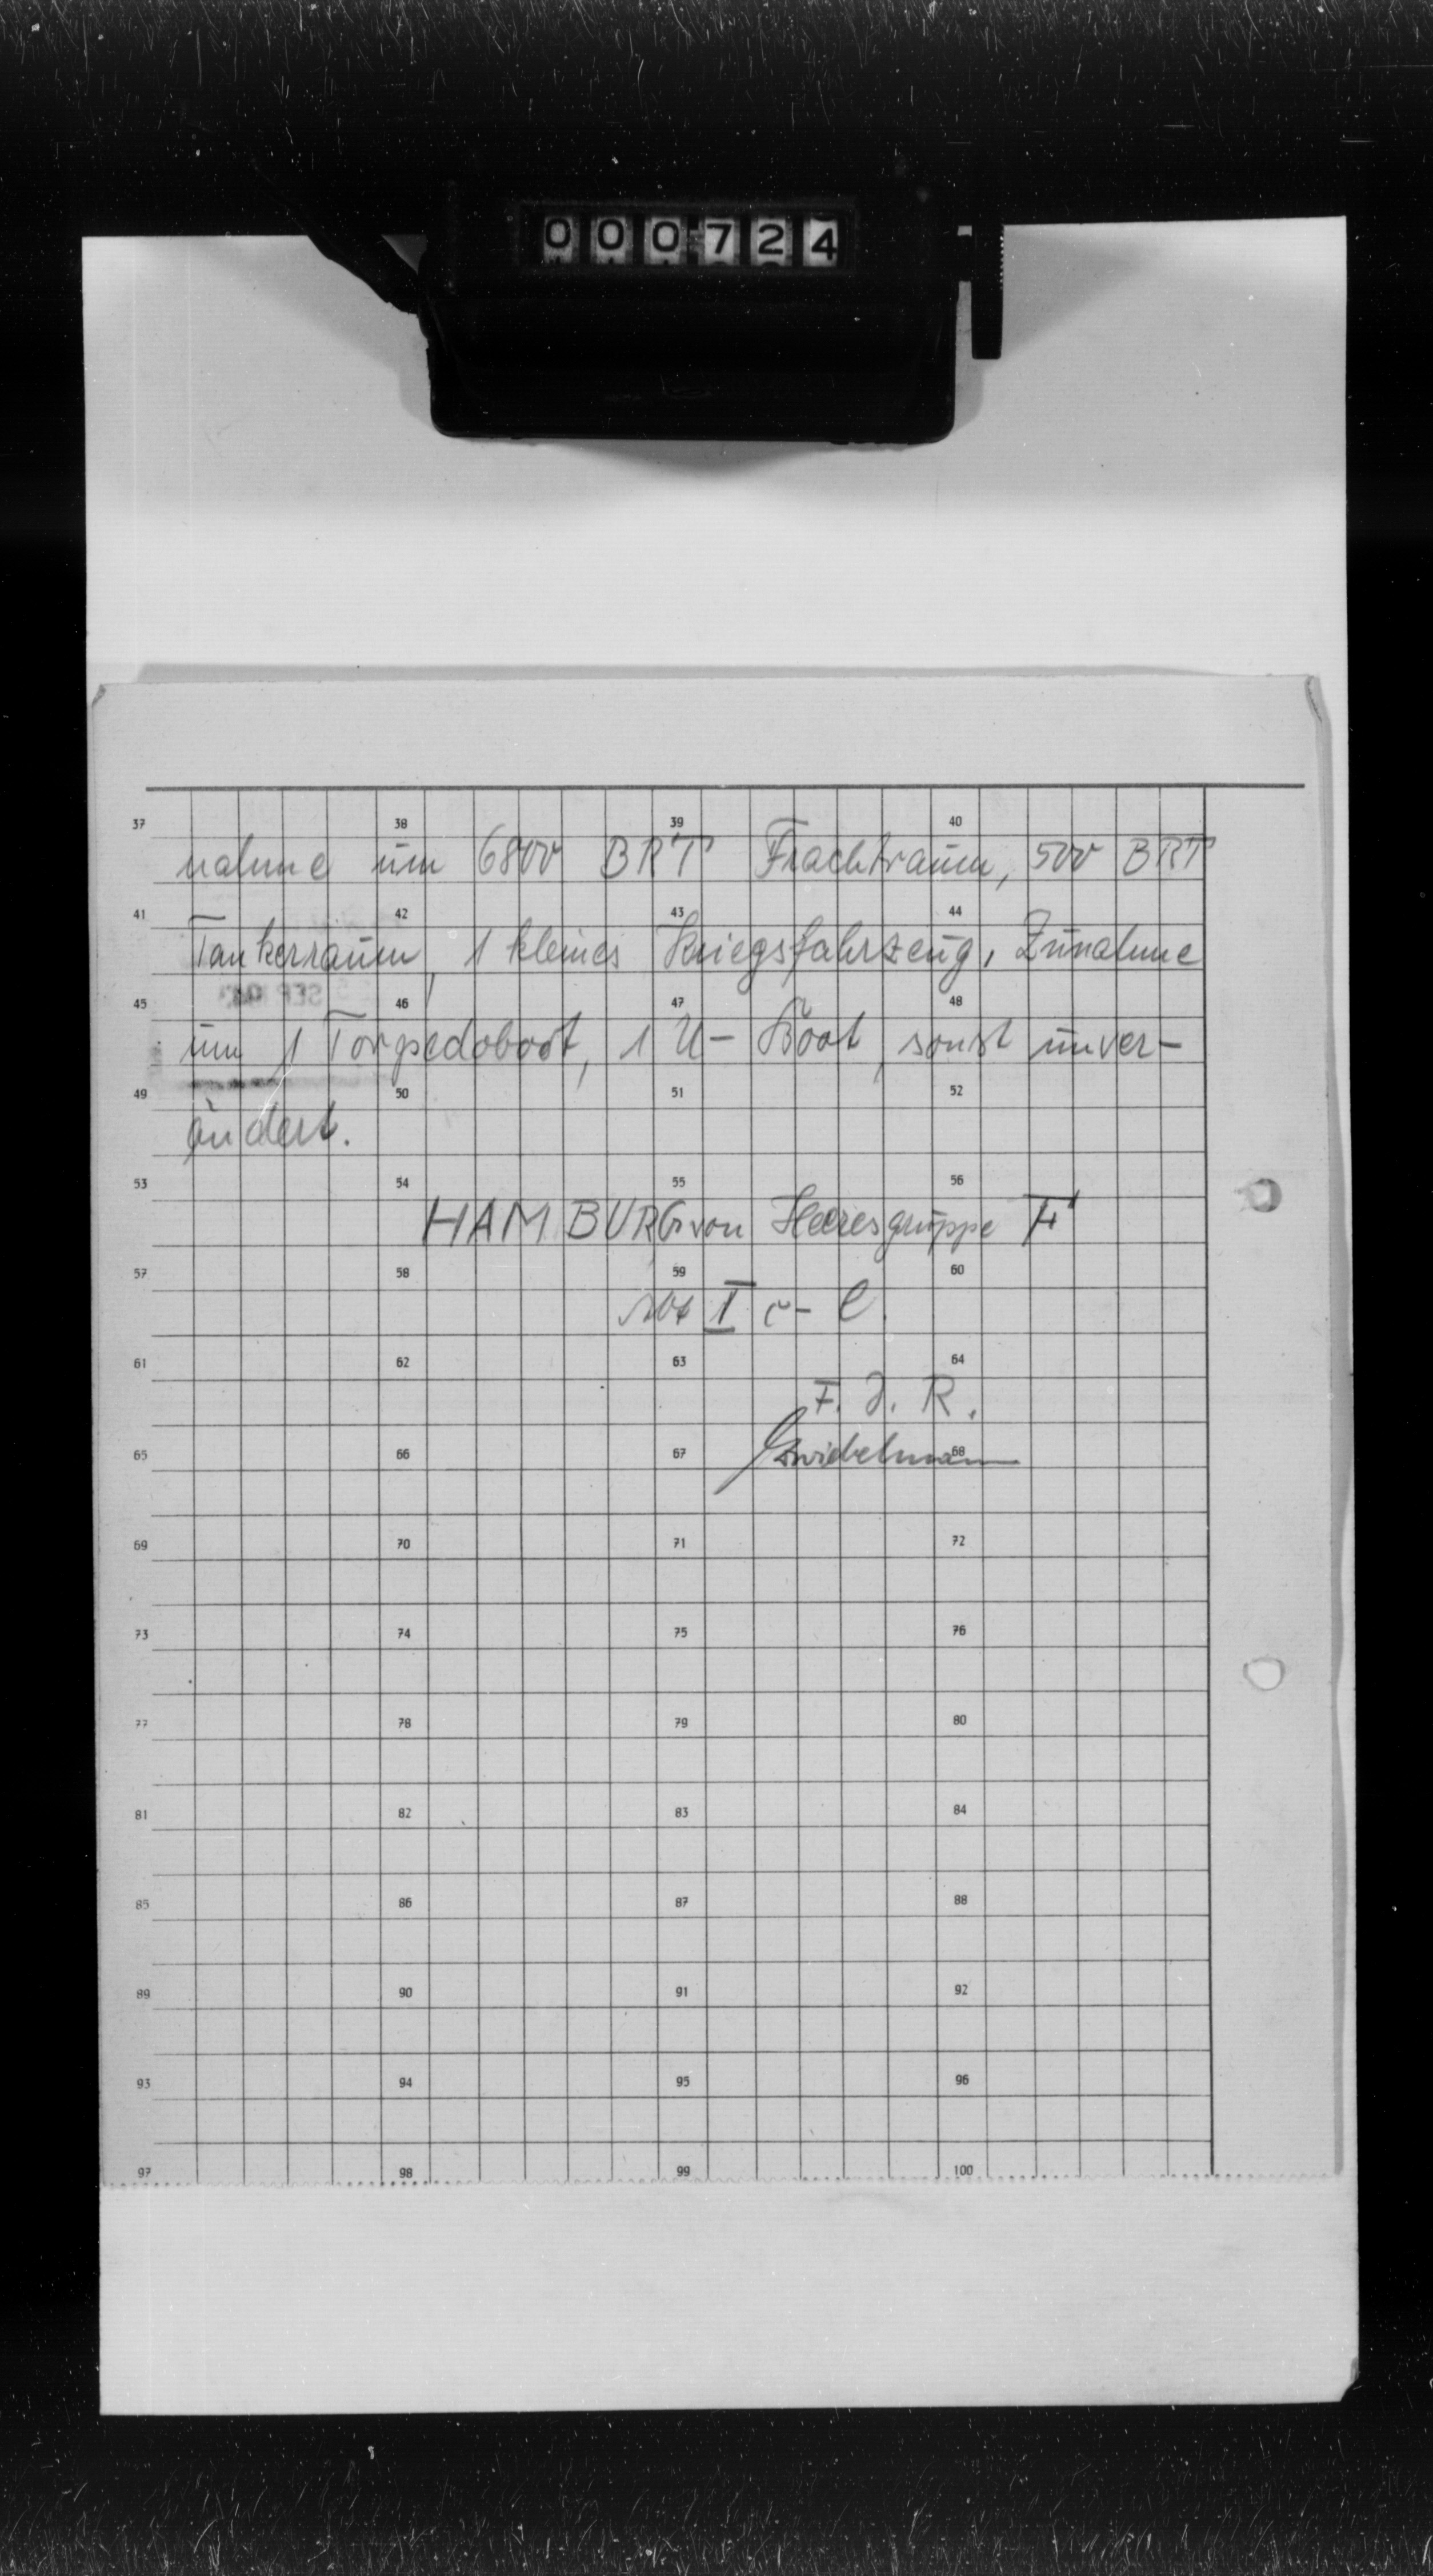 000724
37 38 39 40
nahme um 6800 BRT Frachtraum, 500 BRT
41 42 43 44
Tankerraum, 1 kleines Kriegsfahrzeug, Zunahme
45 46 47 48
um 1 Torpedoboot, 1 U-Boot, sonst unver-
49 50 51 52
ändert.
53 54 55 56
HAMBURG von Heeresgruppe F
57 58 59 60
I c -
61 62 63 64
F. d. R.
65 66 67 68
69 70 71 72
73 74 75 76
77 78 79 80
81 82 83 84
85 86 87 88
89 90 91 92
93 94 95 96
97 98 99 100